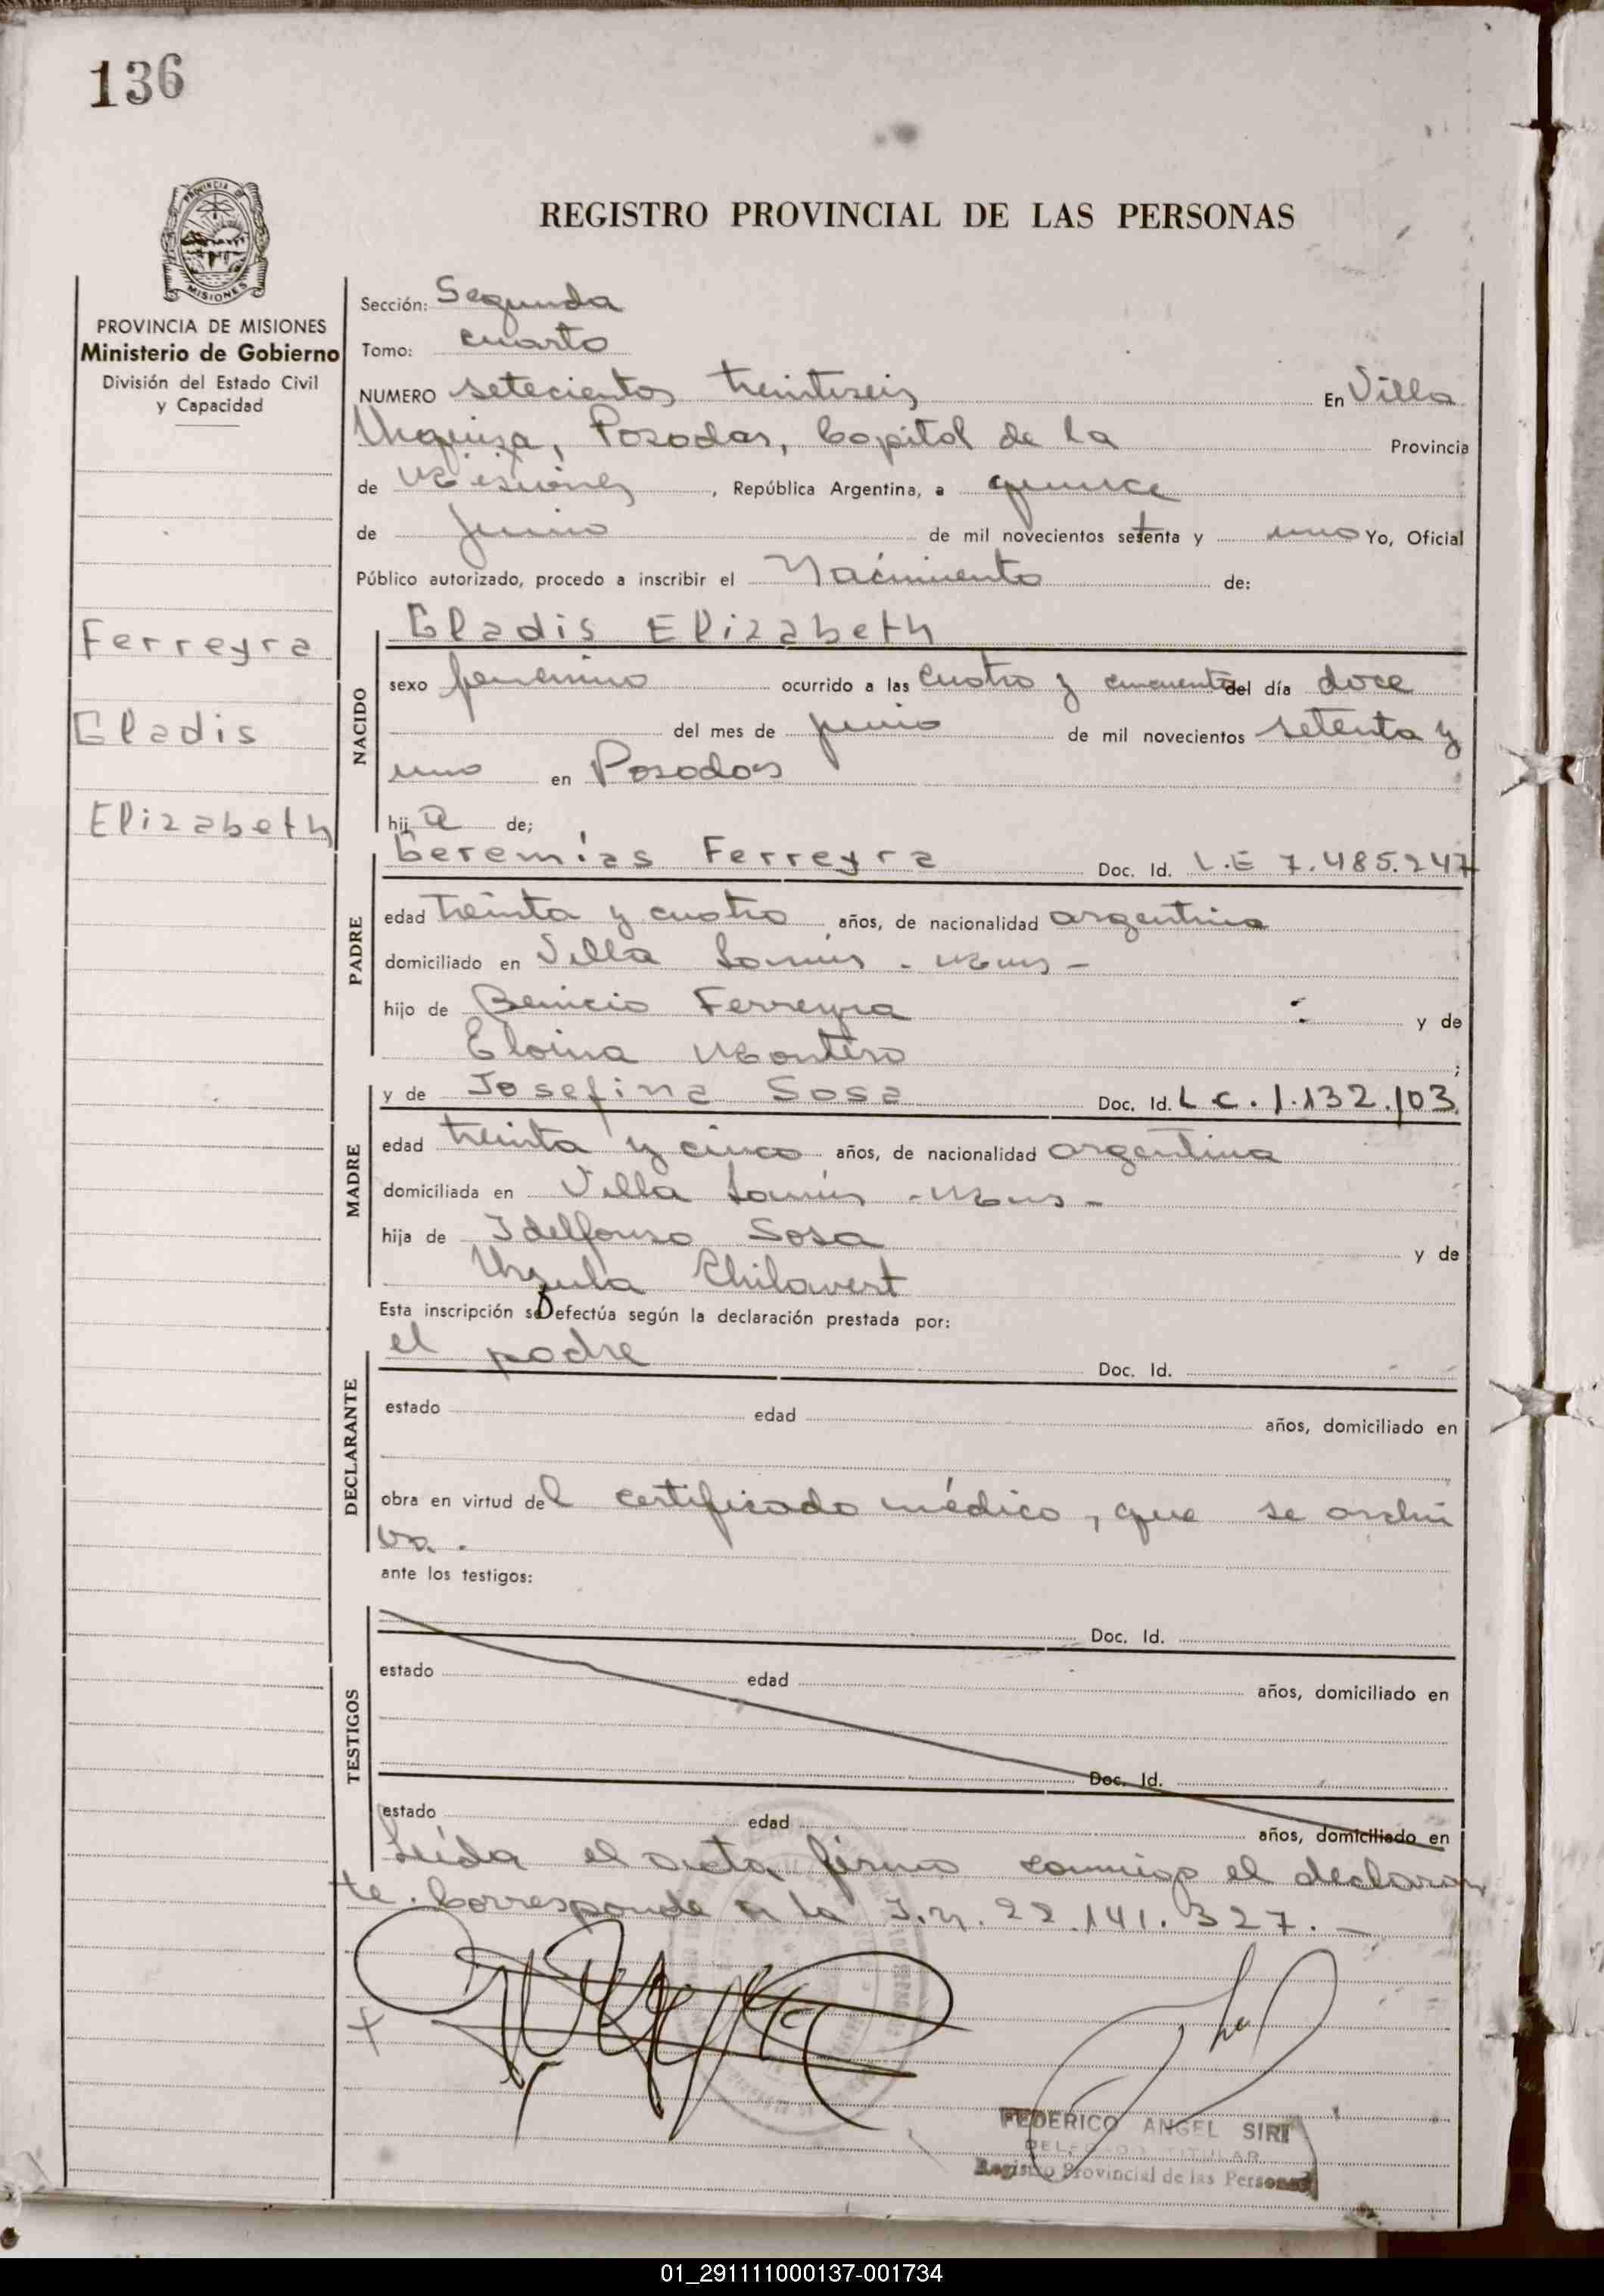 136
PROVINCIA DE
MISIONES
REGISTRO PROVINCIAL DE LAS PERSONAS
PROVINCIA DE MISIONES
Ministerio de Gobierno
División del Estado Civil
y Capacidad
Ferreyra
Gladis
Elizabeth
Sección: Segunda
Tomo: cuarto
NUMERO setecientos treintiseis En Villa
Urquiza, Posadas, Capital de la Provincia
de Misiones, República Argentina, a quince
de junio de mil novecientos setenta y uno Yo, Oficial
Público autorizado, procedo a inscribir el Nacimiento de:
NACIDO
Gladis Elizabeth
sexo femenino ocurrido a las cuatro y cincuenta del día doce
del mes de junio de mil novecientos setenta y
uno en Posadas
hija de;
PADRE
Geremías Ferreyra Doc. Id. L.E 7.485.247
edad treinta y cuatro años, de nacionalidad argentina
domiciliado en Villa Lanús -
hijo de Benicio Ferreyra y de
Eloina Montero ;
MADRE
y de Josefina Sosa Doc. Id. L C. 1.132.103
edad treinta y cinco años, de nacionalidad argentina
domiciliada en Villa Lanús -
hija de Idelfonso Sosa y de
Urzula Chilavert
Esta inscripción se efectúa según la declaración prestada por:
DECLARANTE
el padre Doc. Id.
estado edad años, domiciliado en
obra en virtud del certificado médico, que se archi
va.
ante los testigos:
TESTIGOS
Doc. Id.
estado edad años, domiciliado en
Doc. Id.
estado edad años, domiciliado en
Leída el acta, firma conmigo el declaran
te. Corresponde a la I.n. 22.141.327. -
FEDERICO ANGEL SIRI
DELEGADO TITULAR
Registro Provincial de las Personas
01_291111000137-001734